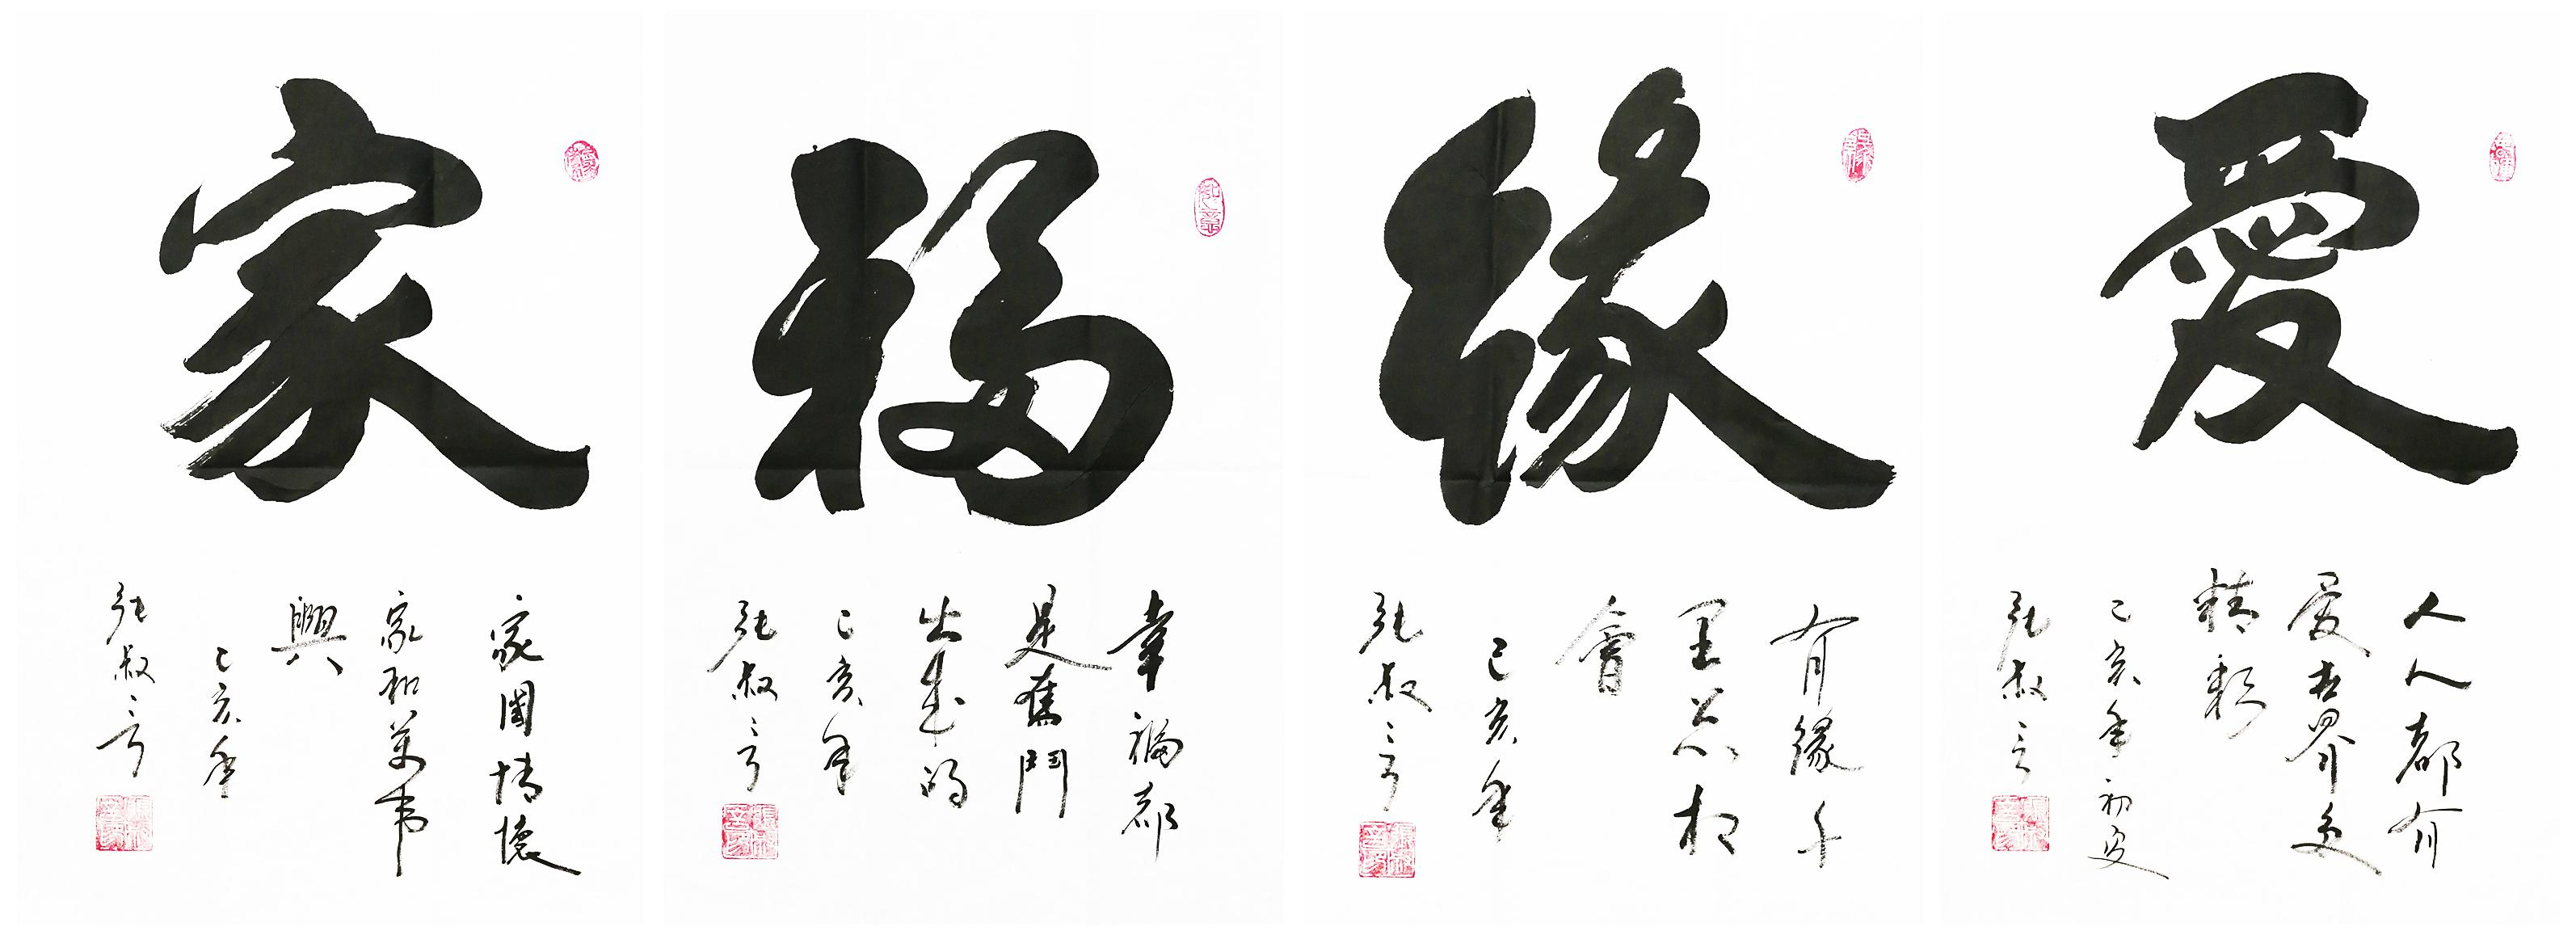 愛
人人都有
愛世界更
精彩
己亥年初夏
张叔言
緣
有緣千
里总相
會
己亥年
张叔言
福
幸福都
是奮鬥
出来的
己亥年
张叔言
家
家國情懷
家和萬事
興
己亥年
张叔言